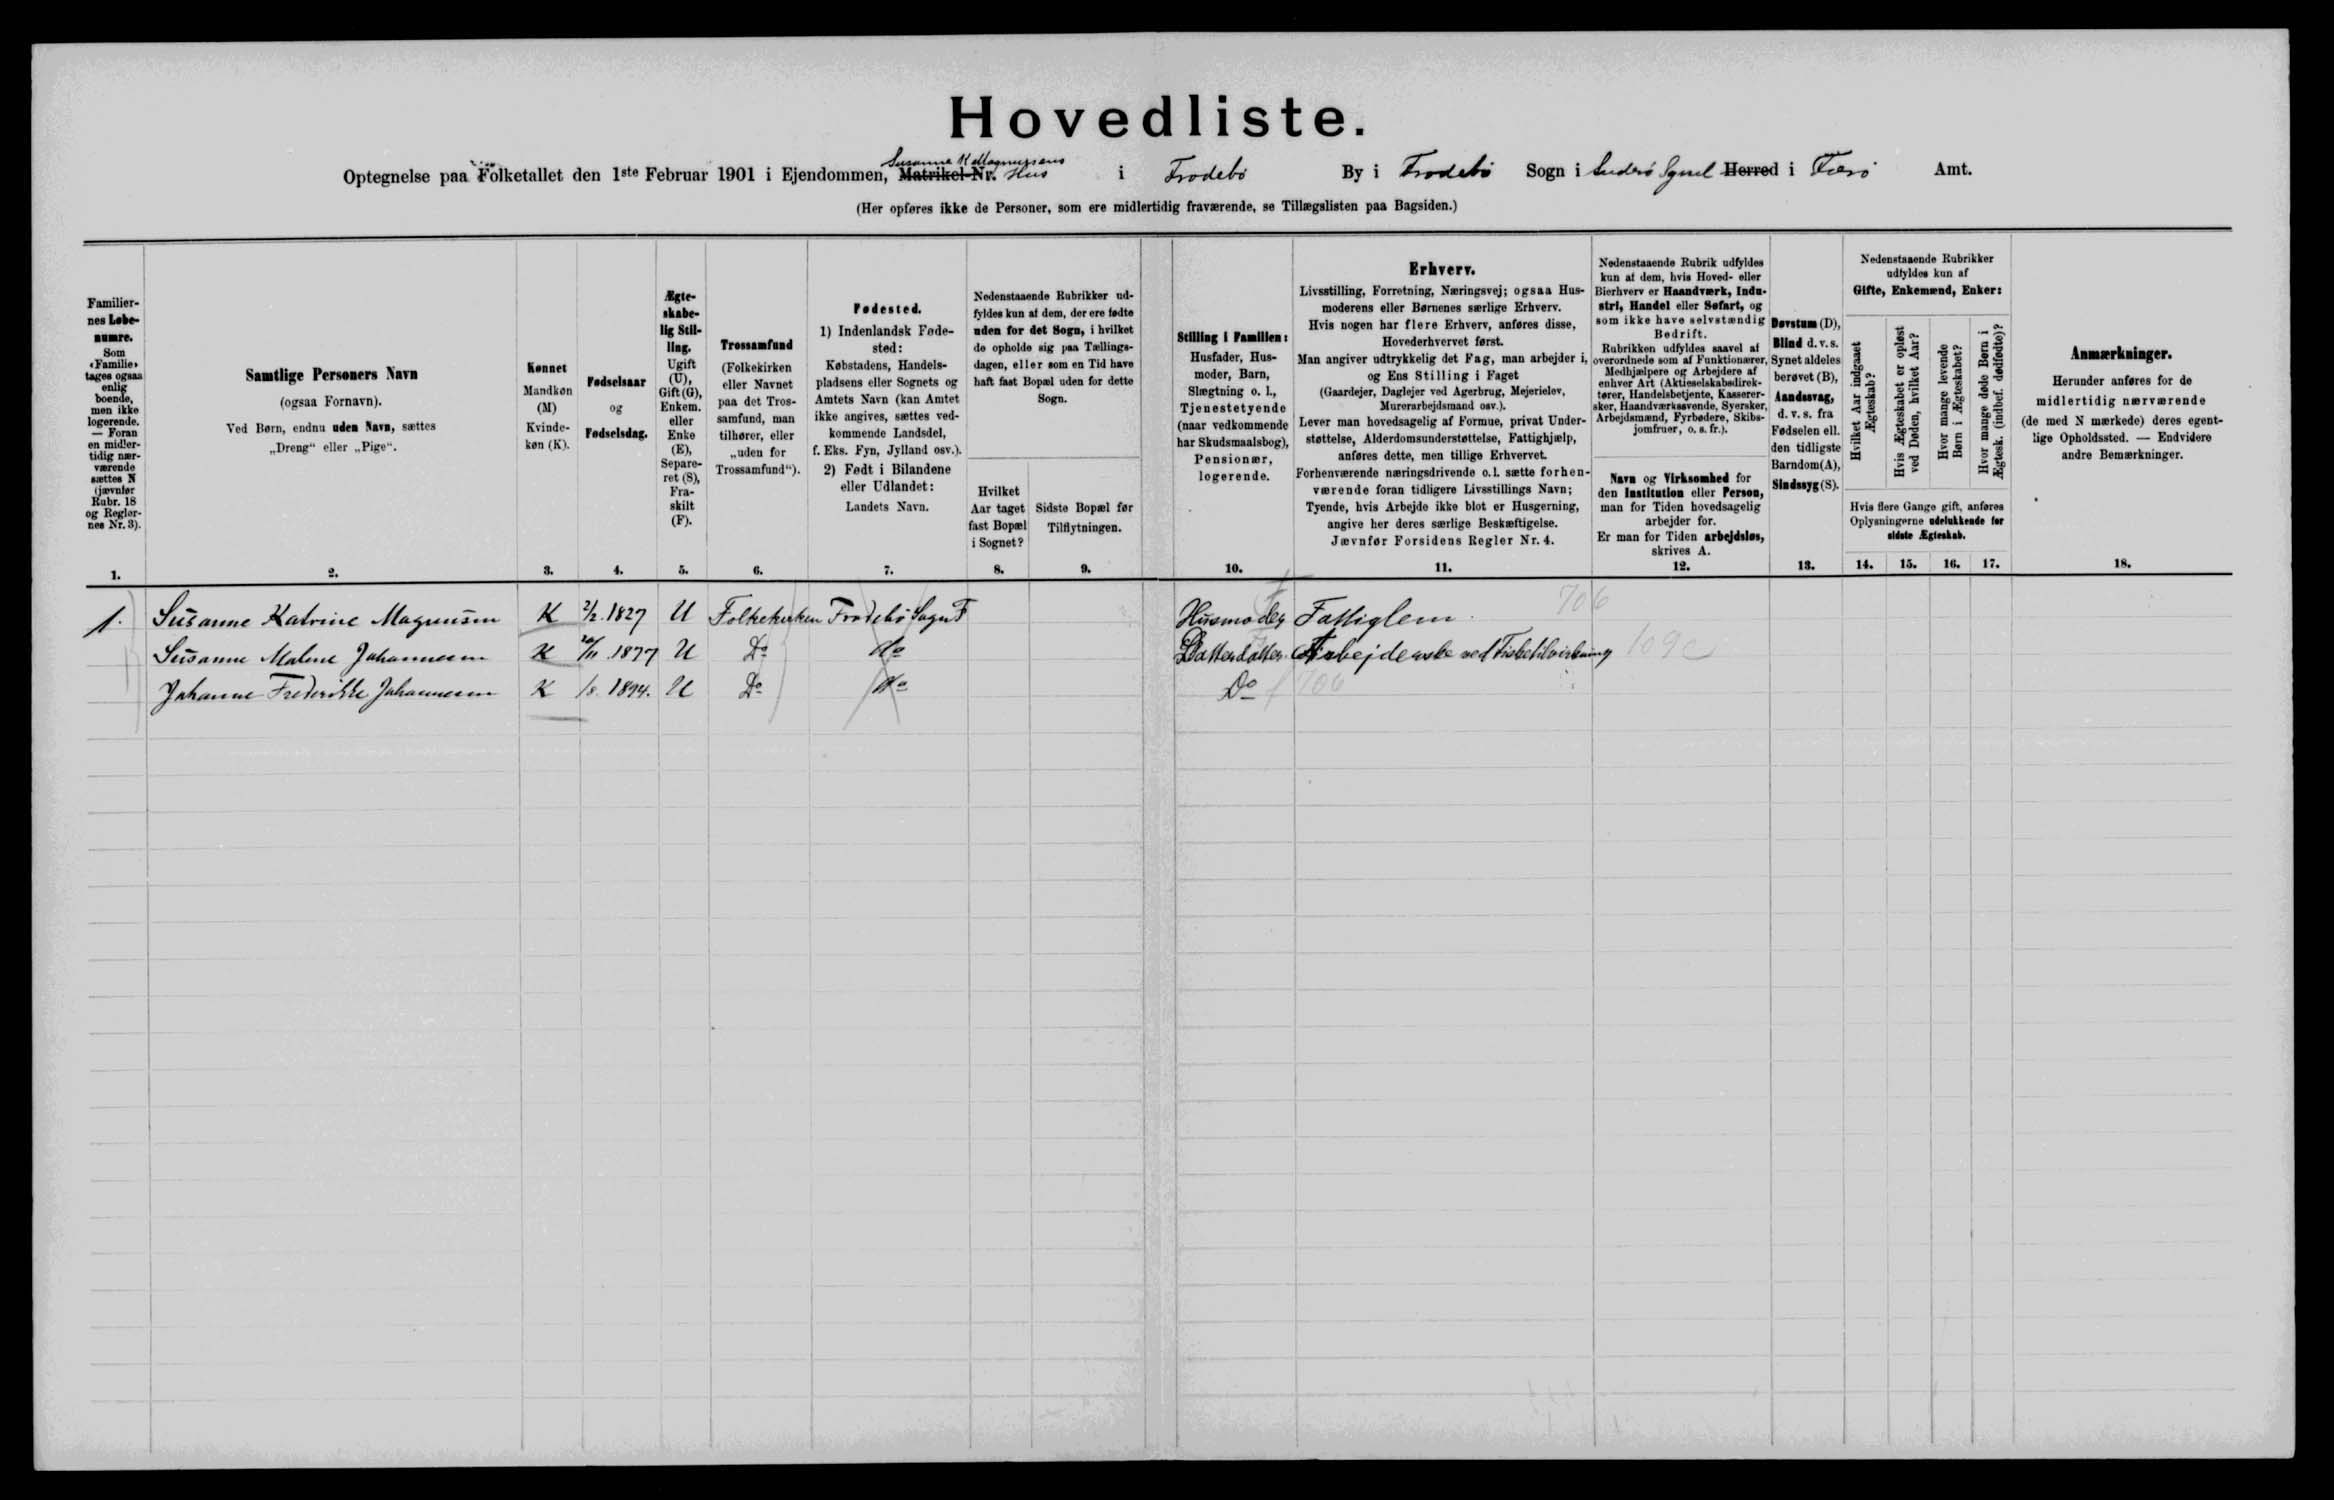 Hovedliste.
Optegnelse paa Folketallet den 1ste Februar 1901 i Ejendommen, Matrikel-Nr. Susanne K Magnussens Hus i Frodebö By i Frodebö Sogn i Suderö Syssel Herred i Færö Amt.
(Her opføres ikke de Personer, som ere midlertidig fraværende, se Tillægslisten paa Bagsiden.)
Familiernes Løbenumre.
Som «Familie» tages ogsaa enlig boende, men ikke logerende. — Foran en midlertidig nærværende sættes N (jævnfør Rubr. 18 og Reglernes Nr. 3).
Samtlige Personers Navn
(ogsaa Fornavn).
Ved Børn, endnu uden Navn, sættes
„Dreng“ eller „Pige“.
Kønnet
Mandkøn (M)
Kvindekøn (K).
Fødselsaar
og
Fødselsdag.
Ægteskabelig Stilling.
Ugift (U), Gift (G), Enkem. eller Enke (E), Separeret (S), Fraskilt (F).
Trossamfund
(Folkekirken eller Navnet paa det Trossamfund, man tilhører, eller „uden for Trossamfund“).
Fødested.
1) Indenlandsk Fødested:
Købstadens, Handelspladsens eller Sognets og Amtets Navn (kan Amtet ikke angives, sættes vedkommende Landsdel, f. Eks. Fyn, Jylland osv.).
2) Født i Bilandene eller Udlandet:
Landets Navn.
Nedenstaaende Rubrikker udfyldes kun af dem, der ere fødte uden for det Sogn, i hvilket de opholde sig paa Tællingsdagen, eller som en Tid have haft fast Bopæl uden for dette Sogn.
Hvilket Aar taget fast Bopæl i Sognet?
Sidste Bopæl før Tilflytningen.
Stilling i Familien:
Husfader, Husmoder, Barn, Slægtning o. l., Tjenestetyende (naar vedkommende har Skudsmaalsbog), Pensionær, logerende.
Erhverv.
Livsstilling, Forretning, Næringsvej; ogsaa Husmoderens eller Børnenes særlige Erhverv.
Hvis nogen har flere Erhverv, anføres disse, Hovederhvervet først.
Man angiver udtrykkelig det Fag, man arbejder i, og Ens Stilling i Faget
(Gaardejer, Daglejer ved Agerbrug, Mejerielev, Murerarbejdsmand osv.).
Lever man hovedsagelig af Formue, privat Understøttelse, Alderdomsunderstøttelse, Fattighjælp, anføres dette, men tillige Erhvervet.
Forhenværende næringsdrivende o. l. sætte forhenværende foran tidligere Livsstillings Navn;
Tyende, hvis Arbejde ikke blot er Husgerning, angive her deres særlige Beskæftigelse.
Jævnfør Forsidens Regler Nr. 4.
Nedenstaaende Rubrik udfyldes kun af dem, hvis Hoved- eller Bierhverv er Haandværk, Industri, Handel eller Søfart, og som ikke have selvstændig Bedrift.
Rubrikken udfyldes saavel af overordnede som af Funktionærer, Medhjælpere og Arbejdere af enhver Art (Aktieselskabsdirektører, Handelsbetjente, Kasserersker, Haandværkssvende, Syersker, Arbejdsmænd, Fyrbødere, Skibsjomfruer, o. s. fr.).
Navn og Virksomhed for den Institution eller Person, man for Tiden hovedsagelig arbejder for.
Er man for Tiden arbejdsløs, skrives A.
Døvstum (D), Blind d. v. s. Synet aldeles berøvet (B), Aandssvag, d. v. s. fra Fødselen ell. den tidligste Barndom (A), Sindssyg (S).
Nedenstaaende Rubrikker udfyldes kun af
Gifte, Enkemænd, Enker:
Hvilket Aar indgaaet Ægteskab?
Hvis Ægteskabet er opløst ved Døden, hvilket Aar?
Hvor mange levende Børn i Ægteskabet?
Hvor mange døde Børn i Ægtesk. (indbef. dødfødte)?
Hvis flere Gange gift, anføres Oplysningerne udelukkende for sidste Ægteskab.
Anmærkninger.
Herunder anføres for de midlertidig nærværende (de med N mærkede) deres egentlige Opholdssted. — Endvidere andre Bemærkninger.
1. 2. 3. 4. 5. 6. 7. 8. 9. 10. 11. 12. 13. 14. 15. 16. 17. 18.
1. Susanne Katrine Magnussen K 2/2 1827 U Folkekirken Frodebö Sogn F Husmoder Fattiglem 706
Susanne Malene Johannesen K 20/11 1877 U Do Do Datterdatter Arbejderske ved Fisketilvirkning 109 c
Johanne Frederikke Johannesen K /8 1894. U Do Do Do 706